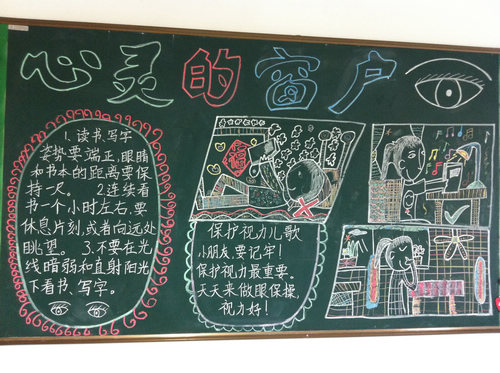 心灵的窗户
1. 读书、写字
姿势要端正,眼睛
和书本的距离要保
持一尺。 2连续看
书一个小时左右,要
休息片刻,或者向远处
眺望。 3.不要在光
线暗弱和直射阳光
下看书、写字。
福
保护视力儿歌
小朋友,要记牢!
保护视力最重要。
天天来做眼保操,
视力好!